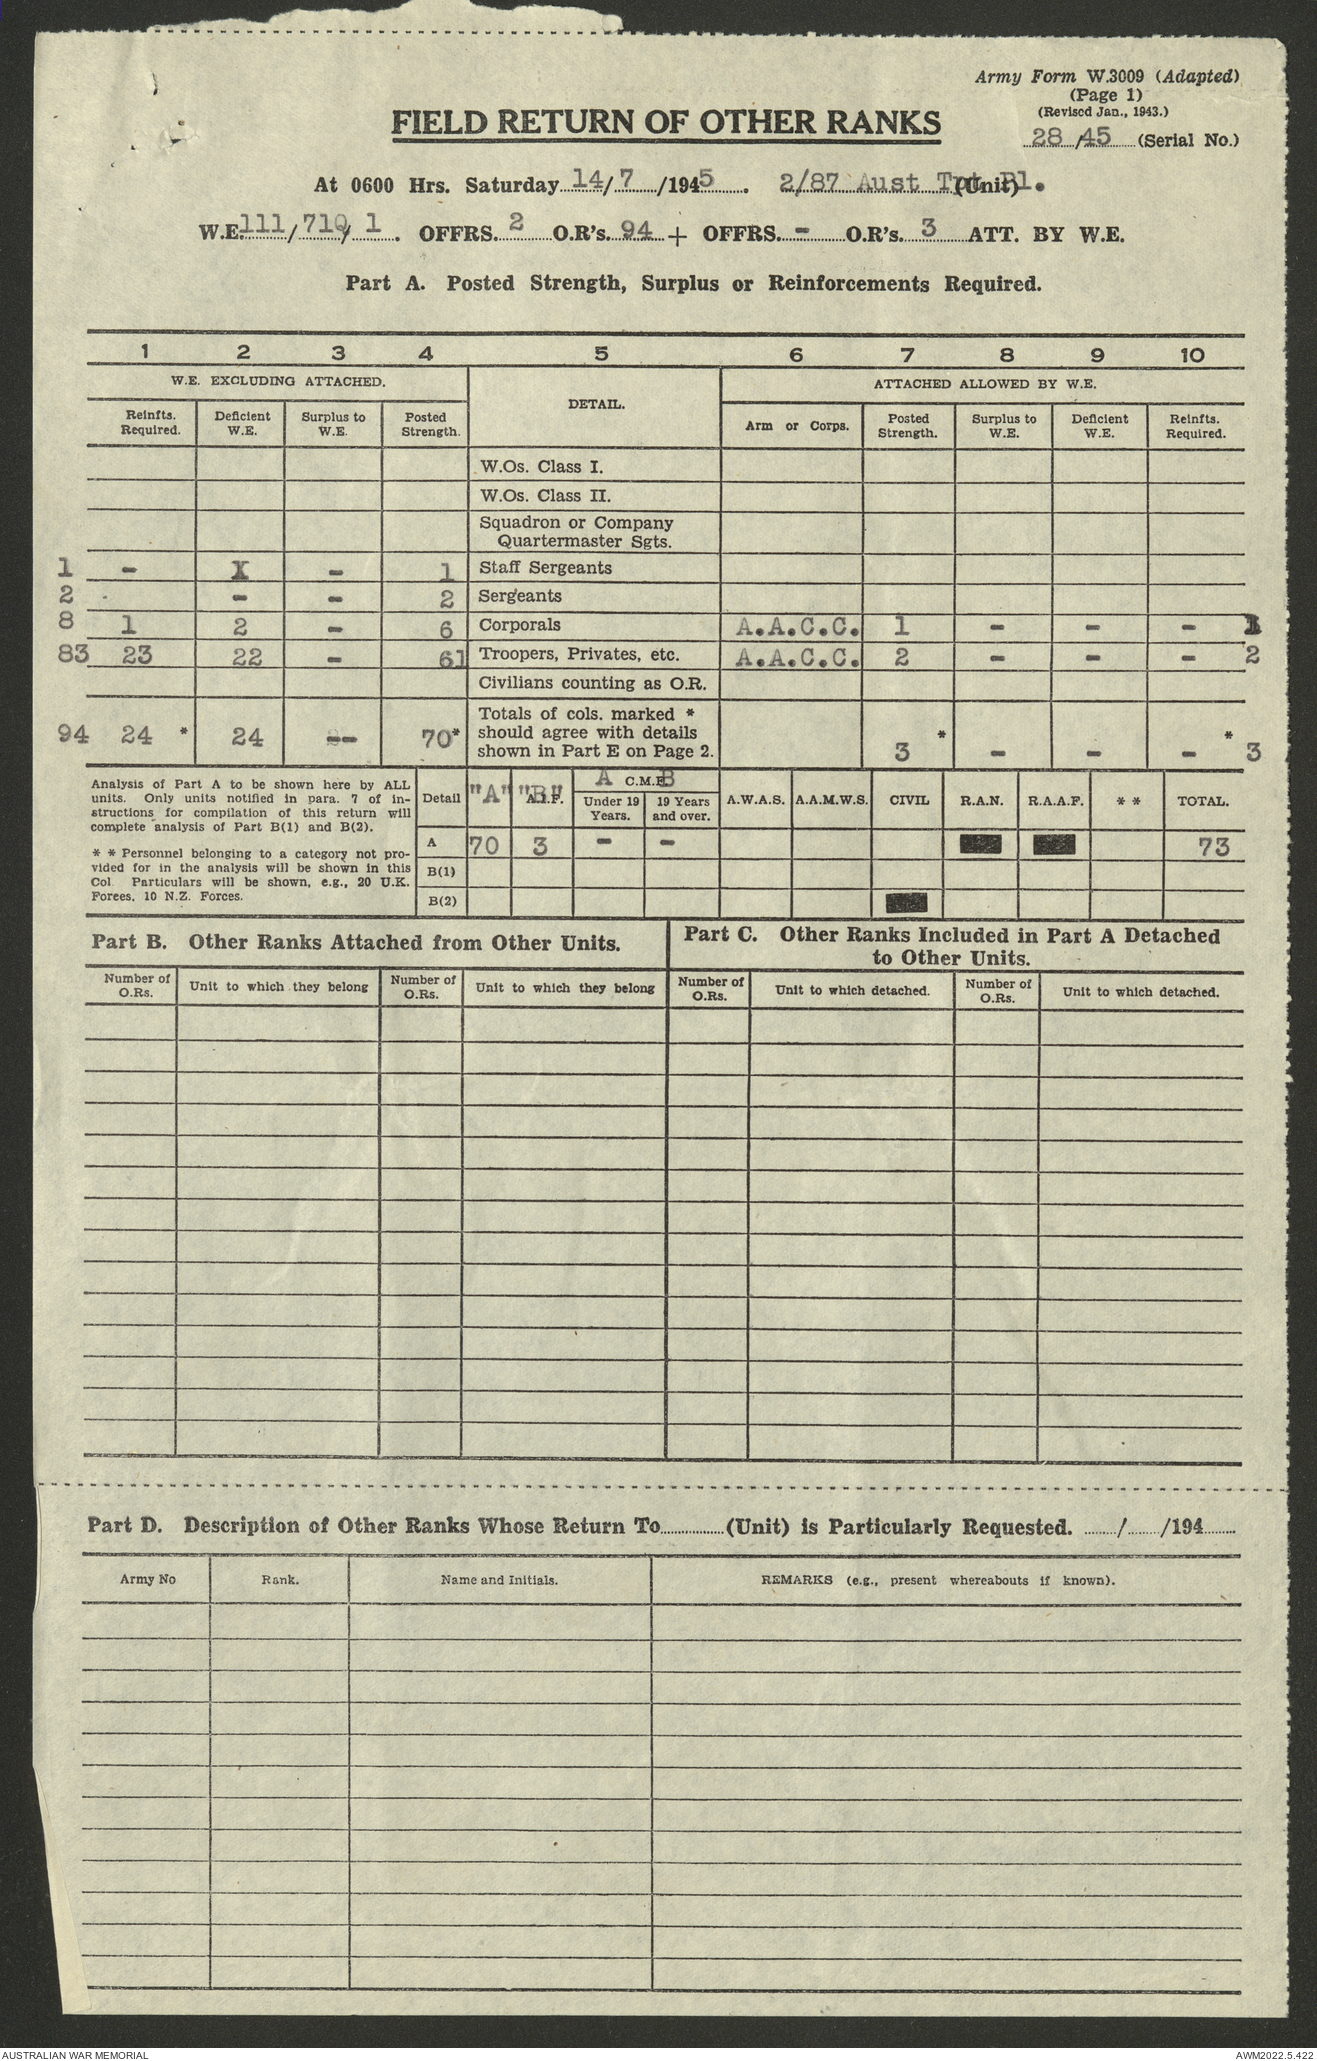 Army Form W.3009 (Adapted)
(Page 1)
(Revised Jan., 1943.)
28/45 (Serial No.)
FIELD RETURN OF OTHER RANKS
At 0600 Hrs. Saturday 14/7/1945. 2/87 Aust Tpt Pl. (Unit)
W.E. 111/710/1. OFFRS. 2 O.R's. 94 + OFFRS. - O.R's. 3 ATT. BY W.E.
Part A. Posted Strength, Surplus or Reinforcements Required.
1 2 3 4 5 6 7 8 9 10
W.E. EXCLUDING ATTACHED. DETAIL. ATTACHED ALLOWED BY W.E.
Reinfts. Required. Deficient W.E. Surplus to W.E. Posted Strength. Arm or Corps. Posted Strength. Surplus to W.E. Deficient W.E. Reinfts. Required.
W.Os. Class I.
W.Os. Class II.
Squadron or Company
Quartermaster Sgts.
1 - X - 1 Staff Sergeants
2 - - 2 Sergeants
8 1 2 - 6 Corporals A.A.C.C. 1 - - - 1
83 23 22 - 61 Troopers, Privates, etc. A.A.C.C. 2 - - - 2
Civilians counting as O.R.
Totals of cols. marked *
should agree with details
shown in Part E on Page 2.
94 24 * 24 -- 70* 3 * - - - * 3
Analysis of Part A to be shown here by ALL
units. Only units notified in para. 7 of in-
structions for compilation of this return will
complete analysis of Part B(1) and B(2).
* * Personnel belonging to a category not pro-
vided for in the analysis will be shown in this
Col. Particulars will be shown, e.g., 20 U.K.
Forces, 10 N.Z. Forces.
Detail "A" "B" A.I.F. A C.M.F. B A.W.A.S. A.A.M.W.S. CIVIL R.A.N. R.A.A.F. * * TOTAL.
Under 19 Years. 19 Years and over.
A 70 3 - - 73
B(1)
B(2)
Part B. Other Ranks Attached from Other Units.
Part C. Other Ranks Included in Part A Detached
to Other Units.
Number of O.Rs. Unit to which they belong Number of O.Rs. Unit to which they belong Number of O.Rs. Unit to which detached. Number of O.Rs. Unit to which detached.
Part D. Description of Other Ranks Whose Return To............(Unit) is Particularly Requested. ....../....../194......
Army No Rank. Name and Initials. REMARKS (e.g., present whereabouts if known).
AUSTRALIAN WAR MEMORIAL
AWM2022.5.422